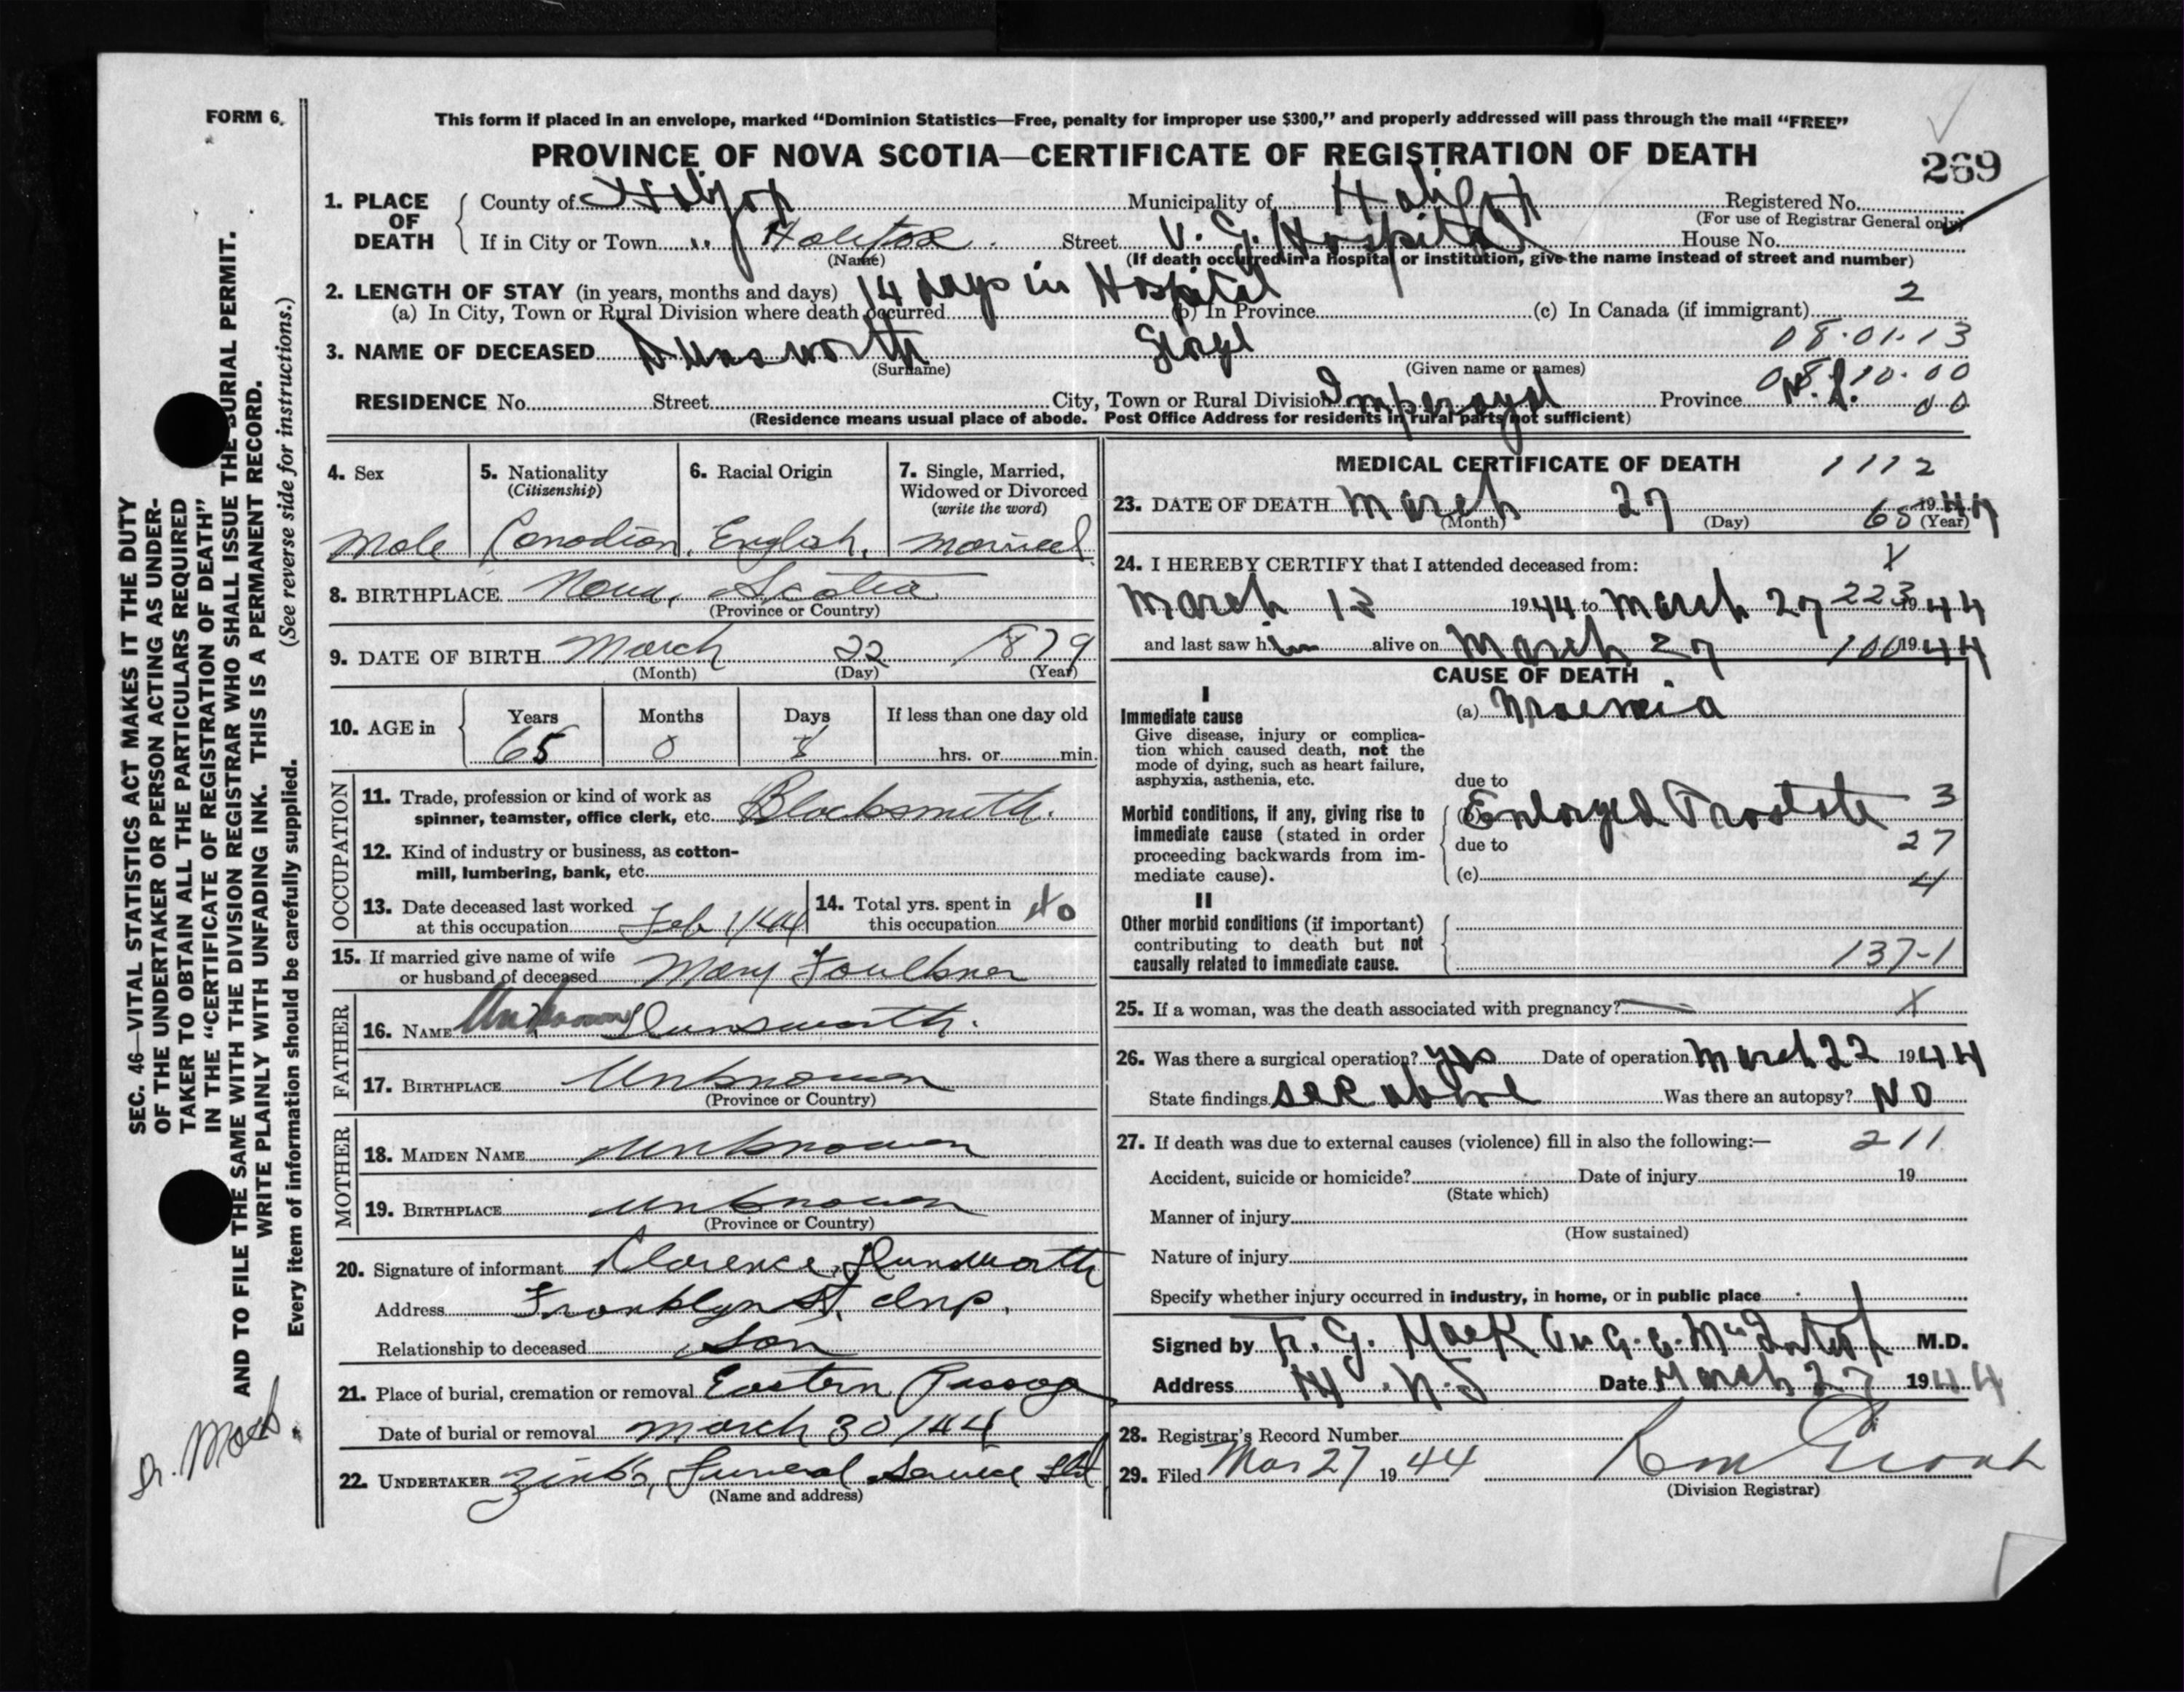 FORM 6.
This form if placed in an envelope, marked “Dominion Statistics—Free, penalty for improper use $300,” and properly addressed will pass through the mail “FREE”
PROVINCE OF NOVA SCOTIA—CERTIFICATE OF REGISTRATION OF DEATH
269
1. PLACE OF DEATH
County of Halifax Municipality of Halifax Registered No.
(For use of Registrar General only)
If in City or Town " Halifax. Street V. G. Hospital House No.
(Name) (If death occurred in a Hospital or institution, give the name instead of street and number)
2. LENGTH OF STAY (in years, months and days) 14 days in Hospital 2
(a) In City, Town or Rural Division where death occurred (b) In Province (c) In Canada (if immigrant)
08.01.13
3. NAME OF DECEASED Dunsworth George
(Surname) (Given name or names)
08.10.00
RESIDENCE No. Street City, Town or Rural Division Imperoyal Province N.S. 00
(Residence means usual place of abode. Post Office Address for residents in rural parts not sufficient)
4. Sex 5. Nationality 6. Racial Origin 7. Single, Married,
(Citizenship) Widowed or Divorced
(write the word)
Male Canadian. English. Married
8. BIRTHPLACE Nova Scotia
(Province or Country)
9. DATE OF BIRTH March 22 1879
(Month) (Day) (Year)
10. AGE in Years Months Days If less than one day old
65 0 hrs. or min.
OCCUPATION
11. Trade, profession or kind of work as
spinner, teamster, office clerk, etc. Blacksmith.
12. Kind of industry or business, as cotton-
mill, lumbering, bank, etc.
13. Date deceased last worked
at this occupation Feb 1/44
14. Total yrs. spent in
this occupation 40
15. If married give name of wife
or husband of deceased Mary Foulkner
FATHER
16. NAME Unknown Dunsworth.
17. BIRTHPLACE Unknown
(Province or Country)
MOTHER
18. MAIDEN NAME Unknown
19. BIRTHPLACE Unknown
(Province or Country)
20. Signature of informant Clarence Dunsworth
Address Franklyn St. Imp.
Relationship to deceased Son
21. Place of burial, cremation or removal Eastern Passage
Date of burial or removal March 30/44
22. UNDERTAKER Zink's Funeral Service Ltd
(Name and address)
MEDICAL CERTIFICATE OF DEATH 1112
23. DATE OF DEATH March 27 1944
(Month) (Day) 65 (Year)
24. I HEREBY CERTIFY that I attended deceased from: X
March 13 1944 to March 27 223 1944
and last saw him alive on March 27 100 1944
CAUSE OF DEATH
I
Immediate cause
Give disease, injury or complica-
tion which caused death, not the
mode of dying, such as heart failure,
asphyxia, asthenia, etc.
(a) Uraemia
due to
Morbid conditions, if any, giving rise to
immediate cause (stated in order
proceeding backwards from im-
mediate cause).
(b) Enlarged Prostate 3
due to 27
(c) 4
II
Other morbid conditions (if important)
contributing to death but not
causally related to immediate cause.
137-1
25. If a woman, was the death associated with pregnancy? — X
26. Was there a surgical operation? yes Date of operation March 22 1944
State findings see above Was there an autopsy? NO
27. If death was due to external causes (violence) fill in also the following:— 211
Accident, suicide or homicide? Date of injury 19
(State which)
Manner of injury
(How sustained)
Nature of injury
Specify whether injury occurred in industry, in home, or in public place
Signed by F. G. Mack G. C. McIntosh M.D.
Address Date March 27 1944
28. Registrar's Record Number
29. Filed Mar 27 1944
(Division Registrar)
SEC. 46—VITAL STATISTICS ACT MAKES IT THE DUTY
OF THE UNDERTAKER OR PERSON ACTING AS UNDER-
TAKER TO OBTAIN ALL THE PARTICULARS REQUIRED
IN THE “CERTIFICATE OF REGISTRATION OF DEATH”
AND TO FILE THE SAME WITH THE DIVISION REGISTRAR WHO SHALL ISSUE THE BURIAL PERMIT.
WRITE PLAINLY WITH UNFADING INK. THIS IS A PERMANENT RECORD.
Every item of information should be carefully supplied. (See reverse side for instructions.)
Dr. Mack.